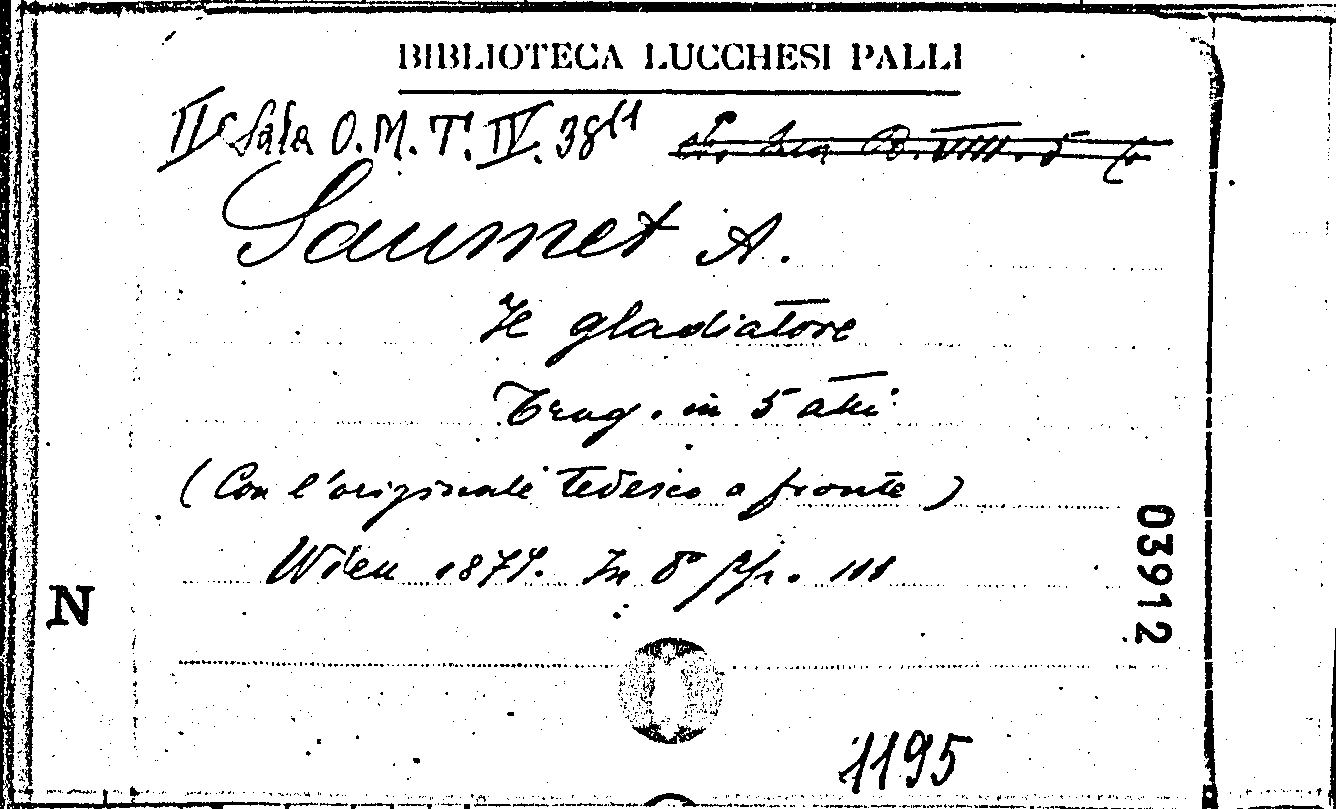 BIBLIOTECA LUCCHESI PALLI
IIª Sala O.M.T. IV. 38¹¹
B. VIII. 5
Saumet A.
Il gladiatore
Trag. in 5 atti
(Con l'originale tedesco a fronte)
Wien 1879. In 8º pp. 111
N
03912
1195